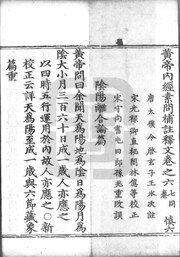 黃帝內經素問補註釋文卷之六 七同卷 慎六
唐太僕令啓玄子王冰次註
宋光祿卿直秘閣林億等校正
宋守尚書屯田郎孫兆重改誤
陰陽離合論篇
黃帝問曰余聞天爲陽地爲陰日爲陽月爲
陰大小月三百六十日成一歲人亦應之
以四時五行運用於內故人亦應之○新
校正云詳天爲陽至成一歲與六節藏象
篇重